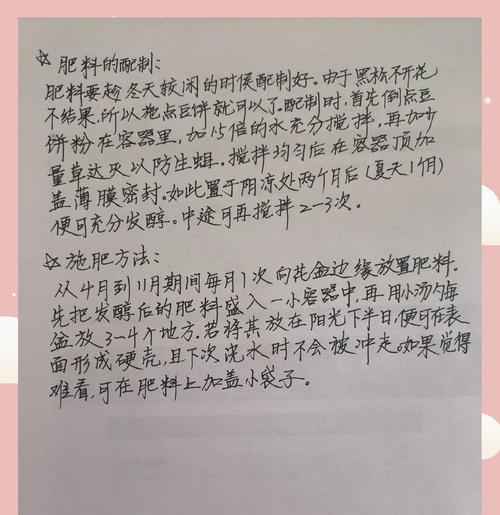 ☆ 肥料的配制:
肥料要趁冬天较闲的时侯配制好。由于黑松不开花
不结果,所以施点豆饼就可以了。配制时,首先倒点豆
饼粉在容器里,加15倍的水充分搅拌,再加少
量草达灭以防生蛆。搅拌均匀后在容器顶加
盖薄膜密封。如此置于阴凉处两个月后(夏天1个月)
便可充分发酵。中途可再搅拌2-3次。
☆ 施肥方法:
从4月到11月期间每月1次向花盆边缘放置肥料.
先把发酵后的肥料盛入一小容器中,再用小汤勺每
盆放3~4个地方.若将其放在阳光下半日,便可在表
面形成硬壳,且下次浇水时不会被冲走。如果觉得
难看,可在肥料上加盖小袋子。